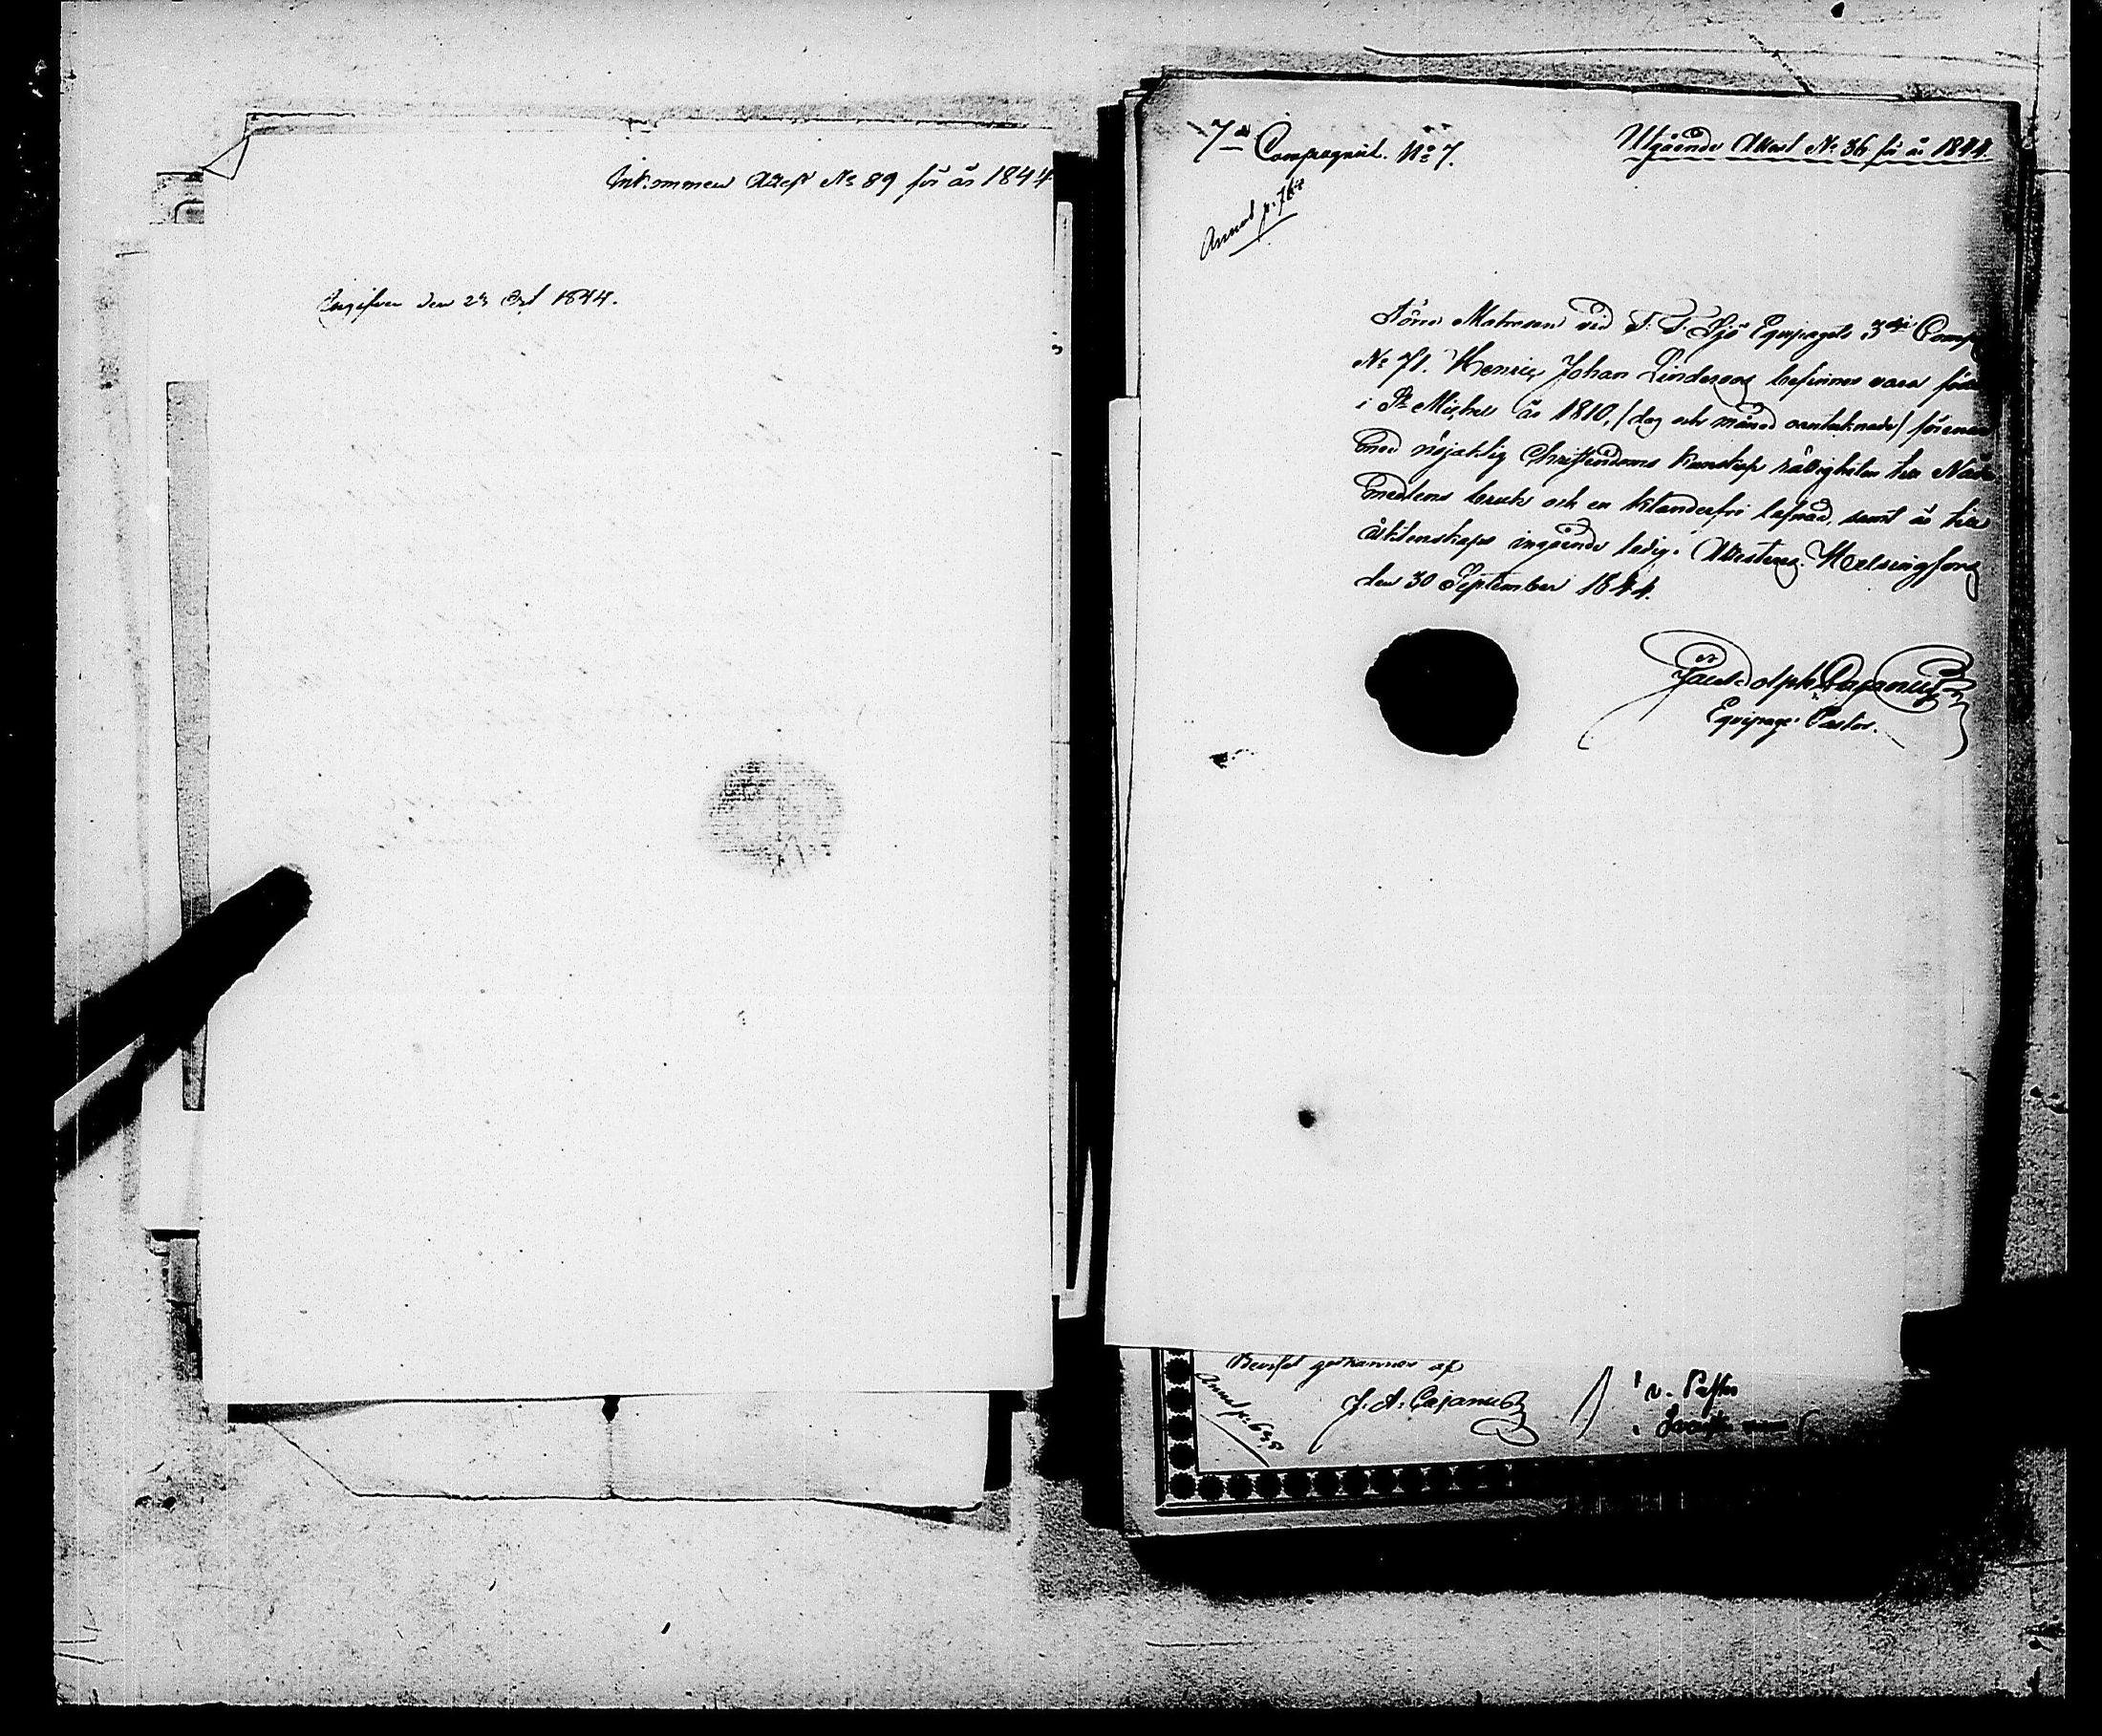 Inkommen Attest No 89 för år 1844
Ingifven den 23 Oct 1844.
7de Compagniet. No 7.
Utgående Attest No 36 för år 1844.
Annot p.
Förre Matrosen vid F. F. Sjö Equipagets 3dje Comp
No 71. Henric Johan Lindroos befinnes vara född
i St Michel år 1810, (dag och månad oantecknade) förenar
med nöjaktig Christendoms kunskap rättigheten till Nåde
medlens bruk och en klanderfri lefnad, samt är till
äktenskaps ingående ledig. Attesteras. Helsingfors
den 30 September 1844.
Jac. Adolph Cajanus
Equipage Pastor.
Beviset godkännes af
Annot p. 638
J. A. Cajanus
v. Pastor